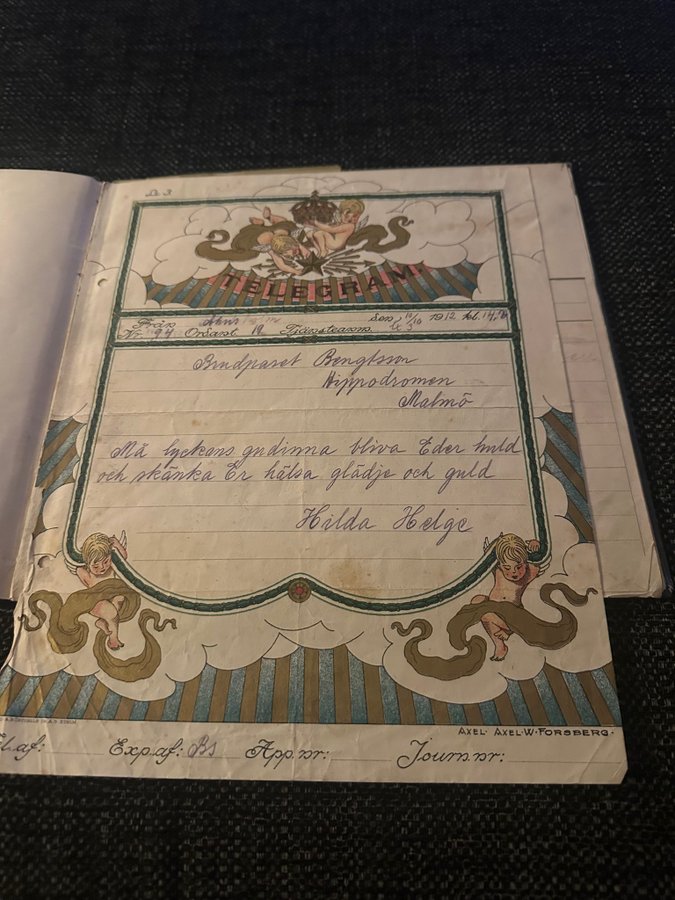 Lx 3
TELEGRAM
Från den 10/10 1912 kl.
Nr 94 Ordant. 19 Tjänsteanm. Lx 3
Brudparet Bengtsson
Hippodromen
Malmö
Må lyckans gudinna bliva Eder huld
och skänka Er hälsa glädje och guld
Hilda Helge
AXEL· AXEL·W·FORSBERG·
Exp.af: Bs App.nr: Journ.nr: